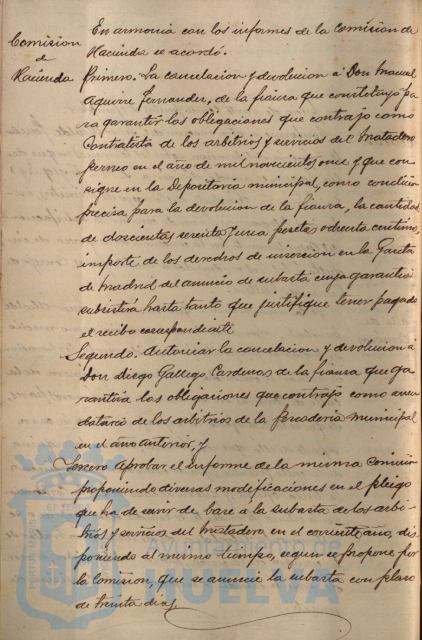 Comision
de
Hacienda
En armonia con los informes de la Comision de
Hacienda se acordó.
Primero. La cancelacion y devolucion á Don Manuel
Aguirre Fernander, de la fianza que constituyó pa
ra garantir las obligaciones que contrajo como
Contratista de los arbitrios y servicios del Matadero
perneo en el año de mil novecientos once y que con
signe en la Depositaria municipal, como condicion
precisa para la devolucion de la fianza, la cantidad
de doscientas sesenta y una pesetas ochenta centimos,
importe de los derechos de insercion en la Gaceta
de Madrid del anuncio de subasta cuya garantia
subsistirá hasta tanto que justifique tener pagado
el recibo correspondiente
Segundo. Autorizar la cancelacion y devolucion á
Don Diego Gallego Cardenas de la fianza que ga
rantiza las obligaciones que contrajo como arren
datario de los arbitrios de la Pescaderia Municipal
en el año anterior, y
Tercero Aprobar el informe de la misma Comision
proponiendo diversas modificaciones en el pliego
que ha de servir de base á la subasta de los arbi-
trios y servicios del Matadero en el corriente año, dis
poniendo al mismo tiempo, segun se propone por
la Comision, que se anuncie la subasta con plazo
de treinta dias.
HUELVA